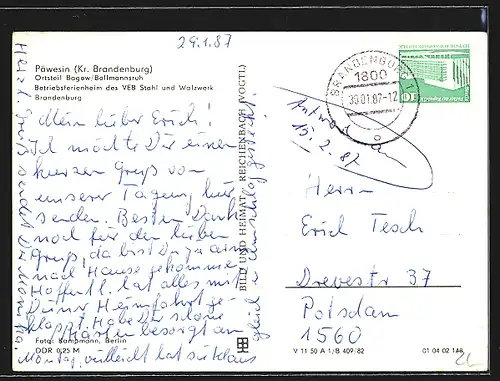 29.1.87
Päwesin (Kr. Brandenburg)
Ortsteil Bagow/Bollmannsruh
Betriebsferienheim des VEB Stahl und Walzwerk
Brandenburg
Mein lieber Erich!
Ich möchte Dir einen
kurzen Gruß von
unserer Tagung hier
senden. Besten Dank
noch für den lieben
Gruß, da bist Du ja
nach Hause gekommen.
Hoffentl. hat alles mit
Deiner Heimfahrt ge-
klappt. Habe Dir
Karten besorgt am
Montag, vielleicht hat
gleich in den
Herzl. Grüße sendet Dir
Foto: Kampmann, Berlin
DDR 0,25 M
BILD UND HEIMAT REICHENBACH (VOGTL)
BRANDENBURG 1
1800
30.01.87-12
10
Antwort
15.2.87
Herrn
Erich Tesch
Drevestr 37
Potsdam
1560
V 11 50 A 1/B 409/82
01 04 02 148